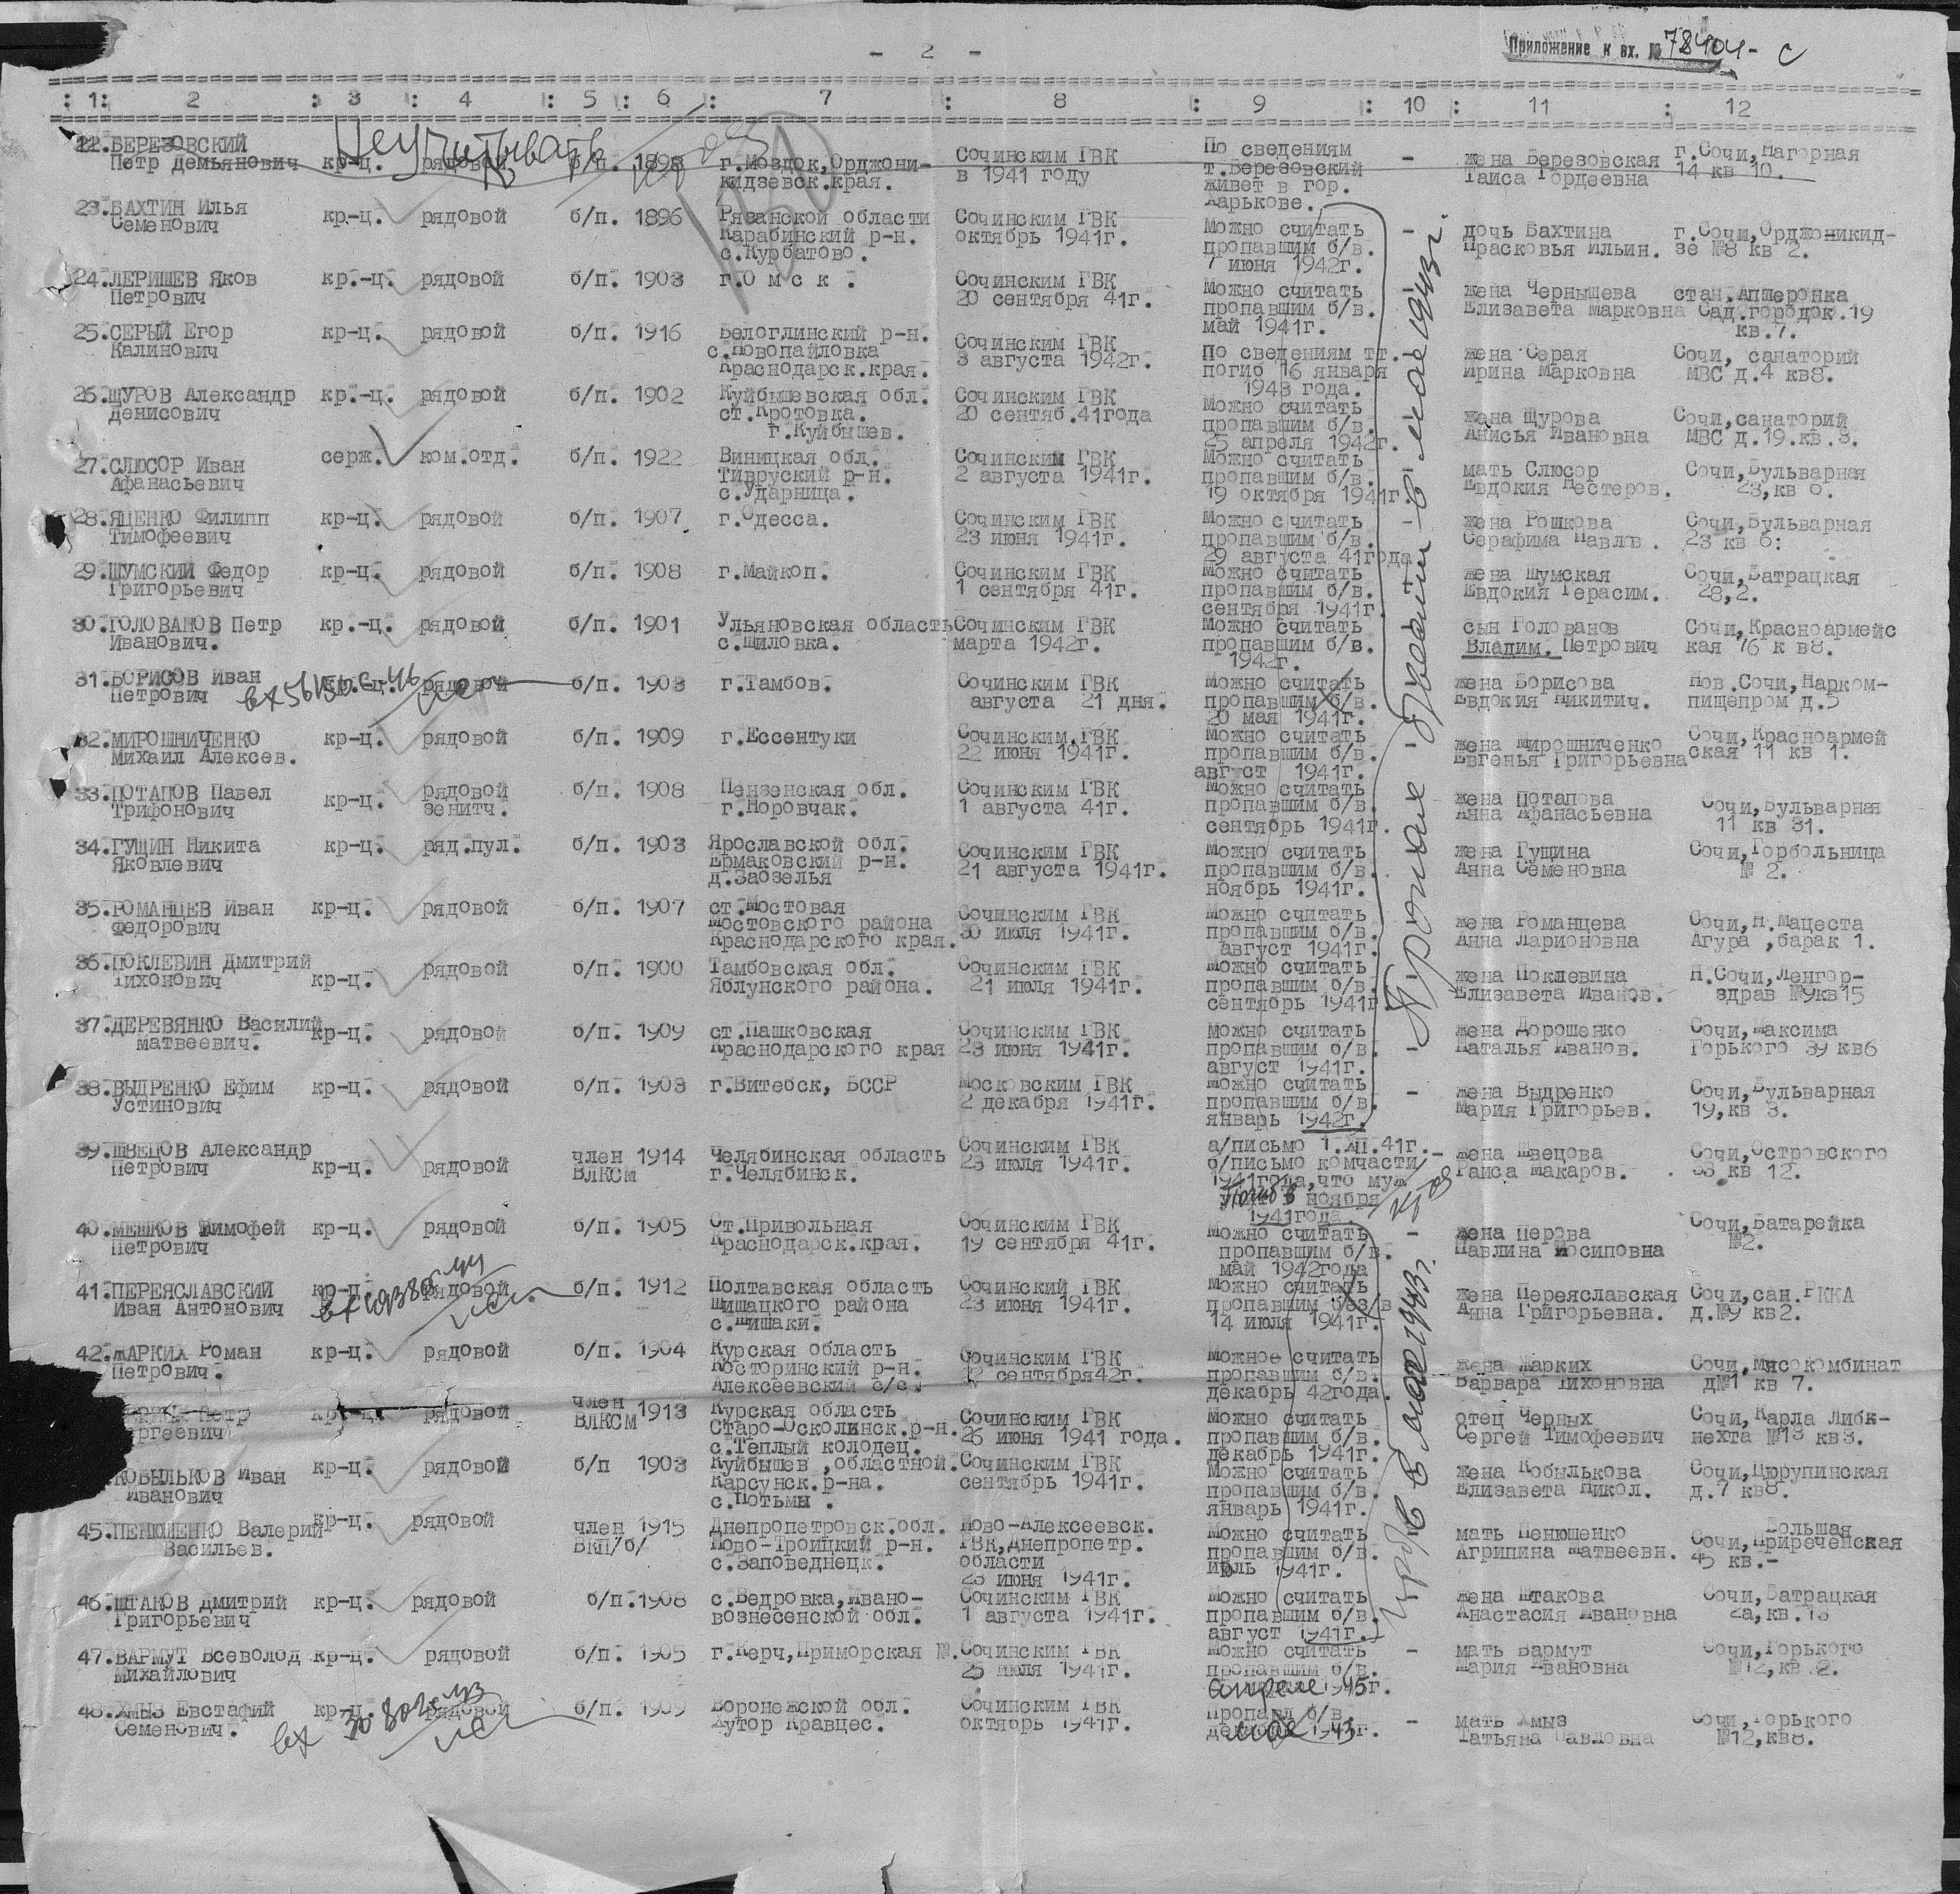 - 2 -
Приложение к вх. № 78404-с
: 1: 2 : 3 : 4 : 5 : 6 : 7 : 8 : 9 : 10 : 11 : 12
Не учитывать
22.БЕРЕЗОВСКИЙ Петр Демьянович кр-ц. рядовой б/п. 1898 г.Моздок,Орджони-кидзевск.края. Сочинским ГВК в 1941 году По сведениям т.Березовский живет в гор. Харькове. - жена Березовская Таиса Гордеевна г.Сочи,Нагорная 14 кв 10.
23.БАХТИН Илья Семенович кр.-ц. рядовой б/п. 1896 Рязанской области Карабинский р-н. с.Курбатово. Сочинским ГВК октябрь 1941г. Можно считать пропавшим б/в. 7 июня 1942г. - дочь Бахтина Прасковья Ильин. г.Сочи,Орджоникид-зе №8 кв 2.
24.ЛЕРИШЕВ Яков Петрович кр.-ц. рядовой б/п. 1903 г.О м с к . Сочинским ГВК 20 сентября 41г. Можно считать пропавшим б/в. май 1941г. жена Чернышева Елизавета Марковна стан.Апшеронка Сад.городок.19 кв.7.
25.СЕРЫЙ Егор Калинович кр-ц. рядовой б/п. 1916 Белоглинский р-н. с.Новопайловка Краснодарск.края. Сочинским ГВК 3 августа 1942г. По сведениям тт. погиб 16 января 1943 года. жена Серая Ирина Марковна Сочи, санаторий МВС д.4 кв8.
26.ЩУРОВ Александр Денисович кр.-ц. рядовой б/п. 1902 Куйбышевская обл. ст.Кротовка. г.Куйбышев. Сочинским ГВК 20 сентяб.41года Можно считать пропавшим б/в. 25 апреля 1942г. жена Щурова Анисья Ивановна Сочи,санаторий МВС д.19.кв.3.
27.СЛЮСОР Иван Афанасьевич серж. ком.отд. б/п. 1922 Виницкая обл. Тивруский р-н. с.Ударница. Сочинским ГВК 2 августа 1941г. Можно считать пропавшим б/в. 19 октября 1941г. мать Слюсор Евдокия Нестеров. Сочи,Бульварная 23,кв 6.
28.ЯЦЕНКО Филипп Тимофеевич кр-ц. рядовой б/п. 1907 г.Одесса. Сочинским ГВК 23 июня 1941г. Можно считать пропавшим б/в. 29 августа 41года жена Рошкова Серафима Павлв. Сочи,Бульварная 23 кв 6:
29.ШУМСКИЙ Федор Григорьевич кр-ц. рядовой б/п. 1908 г.Майкоп. Сочинским ГВК 1 сентября 41г. Можно считать пропавшим б/в. сентября 1941г. жена Шумская Евдокия Герасим. Сочи,Батрацкая 28,2.
30.ГОЛОВАНОВ Петр Иванович. кр.-ц. рядовой б/п. 1901 Ульяновская область с.Шиловка. Сочинским ГВК марта 1942г. Можно считать пропавшим б/в. 1942г. сын Голованов Владим. Петрович Сочи,Красноармейс кая 76 к в8.
31.БОРИСОВ Иван Петрович кр.-ц. рядовой б/п. 1903 г.Тамбов. Сочинским ГВК августа 21 дня. Можно считать пропавшим б/в. 20 мая 1941г. жена Борисова Евдокия Никитич. Нов.Сочи,Нарком-пищепром д.5
32.МИРОШНИЧЕНКО Михаил Алексев. кр-ц. рядовой б/п. 1909 г.Ессентуки Сочинским.ГВК 22 июня 1941г. Можно считать пропавшим б/в. август 1941г. жена Мирошниченко Евгенья Григорьевна Сочи,Красноармей ская 11 кв 1.
33.ПОТАПОВ Павел Трифонович кр-ц. рядовой зенитч. б/п. 1908 Пензенская обл. г.Норовчак. Сочинским ГВК 1 августа 41г. Можно считать пропавшим б/в. сентябрь 1941г. жена Потапова Анна Афанасьевна Сочи,Бульварная 11 кв 31.
34.ГУЩИН Никита Яковлевич кр-ц. ряд.пул. б/п. 1903 Ярославской обл. Ермаковский р-н. д.Заозелья Сочинским ГВК 21 августа 1941г. Можно считать пропавшим б/в. ноябрь 1941г. жена Гущина Анна Семеновна Сочи,Горбольница № 2.
35.РОМАНЦЕВ Иван Федорович кр-ц. рядовой б/п. 1907 ст.Мостовая Мостовского района Краснодарского края. Сочинским ГВК 30 июля 1941г. Можно считать пропавшим б/в. август 1941г. жена Романцева Анна Ларионовна Сочи,Н.Мацеста Агура ,барак 1.
36.ПОКЛЕВИН Дмитрий Тихонович кр-ц. рядовой б/п. 1900 Тамбовская обл. Яблунского района. Сочинским ГВК 21 июля 1941г. Можно считать пропавшим б/в. сентябрь 1941г жена Поклевина Елизавета Иванов. Н.Сочи,Ленгор-здрав №9кв15
37.ДЕРЕВЯНКО Василий Матвеевич. кр-ц. рядовой б/п. 1909 ст.Пашковская Краснодарского края Сочинским ГВК 23 июня 1941г. Можно считать пропавшим б/в. август 1941г. - жена Дорошенко Наталья Иванов. Сочи,Максима Горького 39 кв6
38.ВЫДРЕНКО Ефим Устинович кр-ц. рядовой б/п. 1903 г.Витебск, БССР Московским ГВК 2 декабря 1941г. Можно считать пропавшим б/в. январь 1942г. - жена Выдренко Мария Григорьев. Сочи,Бульварная 19,кв 3.
39.ШВЕЦОВ Александр Петрович кр-ц. рядовой член ВЛКСМ 1914 Челябинская область г.Челябинск. Сочинским ГВК 23 июля 1941г. а/письмо 1.XII.41г. б/письмо комчасти 1941года,что муж погиб в ноября 1941года. - жена Швецова Раиса Макаров. Сочи,Островского 33 кв 12.
40.МЕШКОВ Тимофей Петрович кр-ц. рядовой б/п. 1905 Ст.Привольная Краснодарск.края. Сочинским ГВК 19 сентября 41г. Можно считать пропавшим б/в. май 1942года - жена Перова Павлина Иосиповна Сочи,Батарейка №2.
41.ПЕРЕЯСЛАВСКИЙ Иван Антонович кр-ц. рядовой. б/п. 1912 Полтавская область Шишацкого района с.Шишаки. Сочинский ГВК 23 июня 1941г. Можно считать пропавшим без/в 14 июля 1941г. жена Переяславская Анна Григорьевна. Сочи,сан.РККА д.№9 кв2.
42.ЖАРКИХ Роман Петрович. кр-ц. рядовой б/п. 1904 Курская область Косторинский р-н. Алексеевский с/с. Сочинским ГВК 12 сентября42г. Можное считать пропавшим б/в. декабрь 42года. жена Жарких Варвара Тихоновна Сочи,Мясокомбинат д№1 кв 7.
Петр ергеевич кр-ц. рядовой член ВЛКСМ 1913 Курская область Старо-Осколинск.р-н. с.Теплый колодец. Сочинским ГВК 26 июня 1941 года. Можно считать пропавшим б/в. декабрь 1941г. отец Черных Сергей Тимофеевич Сочи,Карла Либк-нехта №13 кв3.
КОБЫЛЬКОВ Иван Иванович кр-ц. рядовой б/п 1903 Куйбышев ,областной. Карсунск.р-на. с.Потьмы . Сочинским ГВК сентябрь 1941г. Можно считать пропавшим б/в. январь 1941г. жена Кобылькова Елизавета Никол. Сочи,Цюрупинская д.7 кв8.
45.ПЕНЮШЕНКО Валерий Васильев. кр-ц. рядовой член ВКП/б/ 1915 Днепропетровск.обл. Ново-Троицкий р-н. с.Заповеднецк. Ново-Алексеевск. ГВК,Днепропетр. области 23 июня 1941г. Можно считать пропавшим б/в. июль 1941г. мать Пенюшенко Агрипина Матвеевн. Сочи,Большая Приреченская 45 кв.-
46.ШТАКОВ Дмитрий Григорьевич кр-ц. рядовой б/п.1908 с.Ведровка,Ивано-вознесенской обл. Сочинским ГВК 1 августа 1941г. Можно считать пропавшим б/в. август 1941г. жена Штакова Анастасия Ивановна Сочи,Батрацкая 2а,кв.13
47.ВАРМУТ Всеволод Михайлович кр-ц. рядовой б/п. 1905 г.Керч,Приморская №. Сочинским ГВК 25 июля 1941г. Можно считать пропавшим б/в. апреле 1945г. - мать Вармут Мария Ивановна Сочи,Горького №12,кв.2.
48.ХМЫЗ Евстафий Семенович. кр-ц. рядовой б/п. 1909 Воронежской обл. Хутор Кравцес. Сочинским ГВК октябрь 1941г. Пропал б/в. мае 1943г. - мать Хмыз Татьяна Павловна Сочи,Горького №12,кв8.